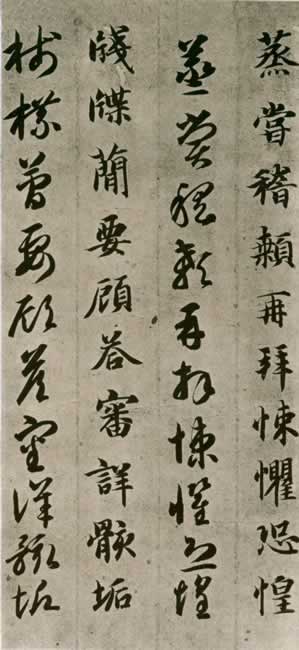 蒸嘗稽顙再拜悚懼恐惶
蒸嘗稽顙再拜悚懼恐惶
牋牒蕳要顧荅審詳骸垢
牋牒蕳要顧荅審詳骸垢